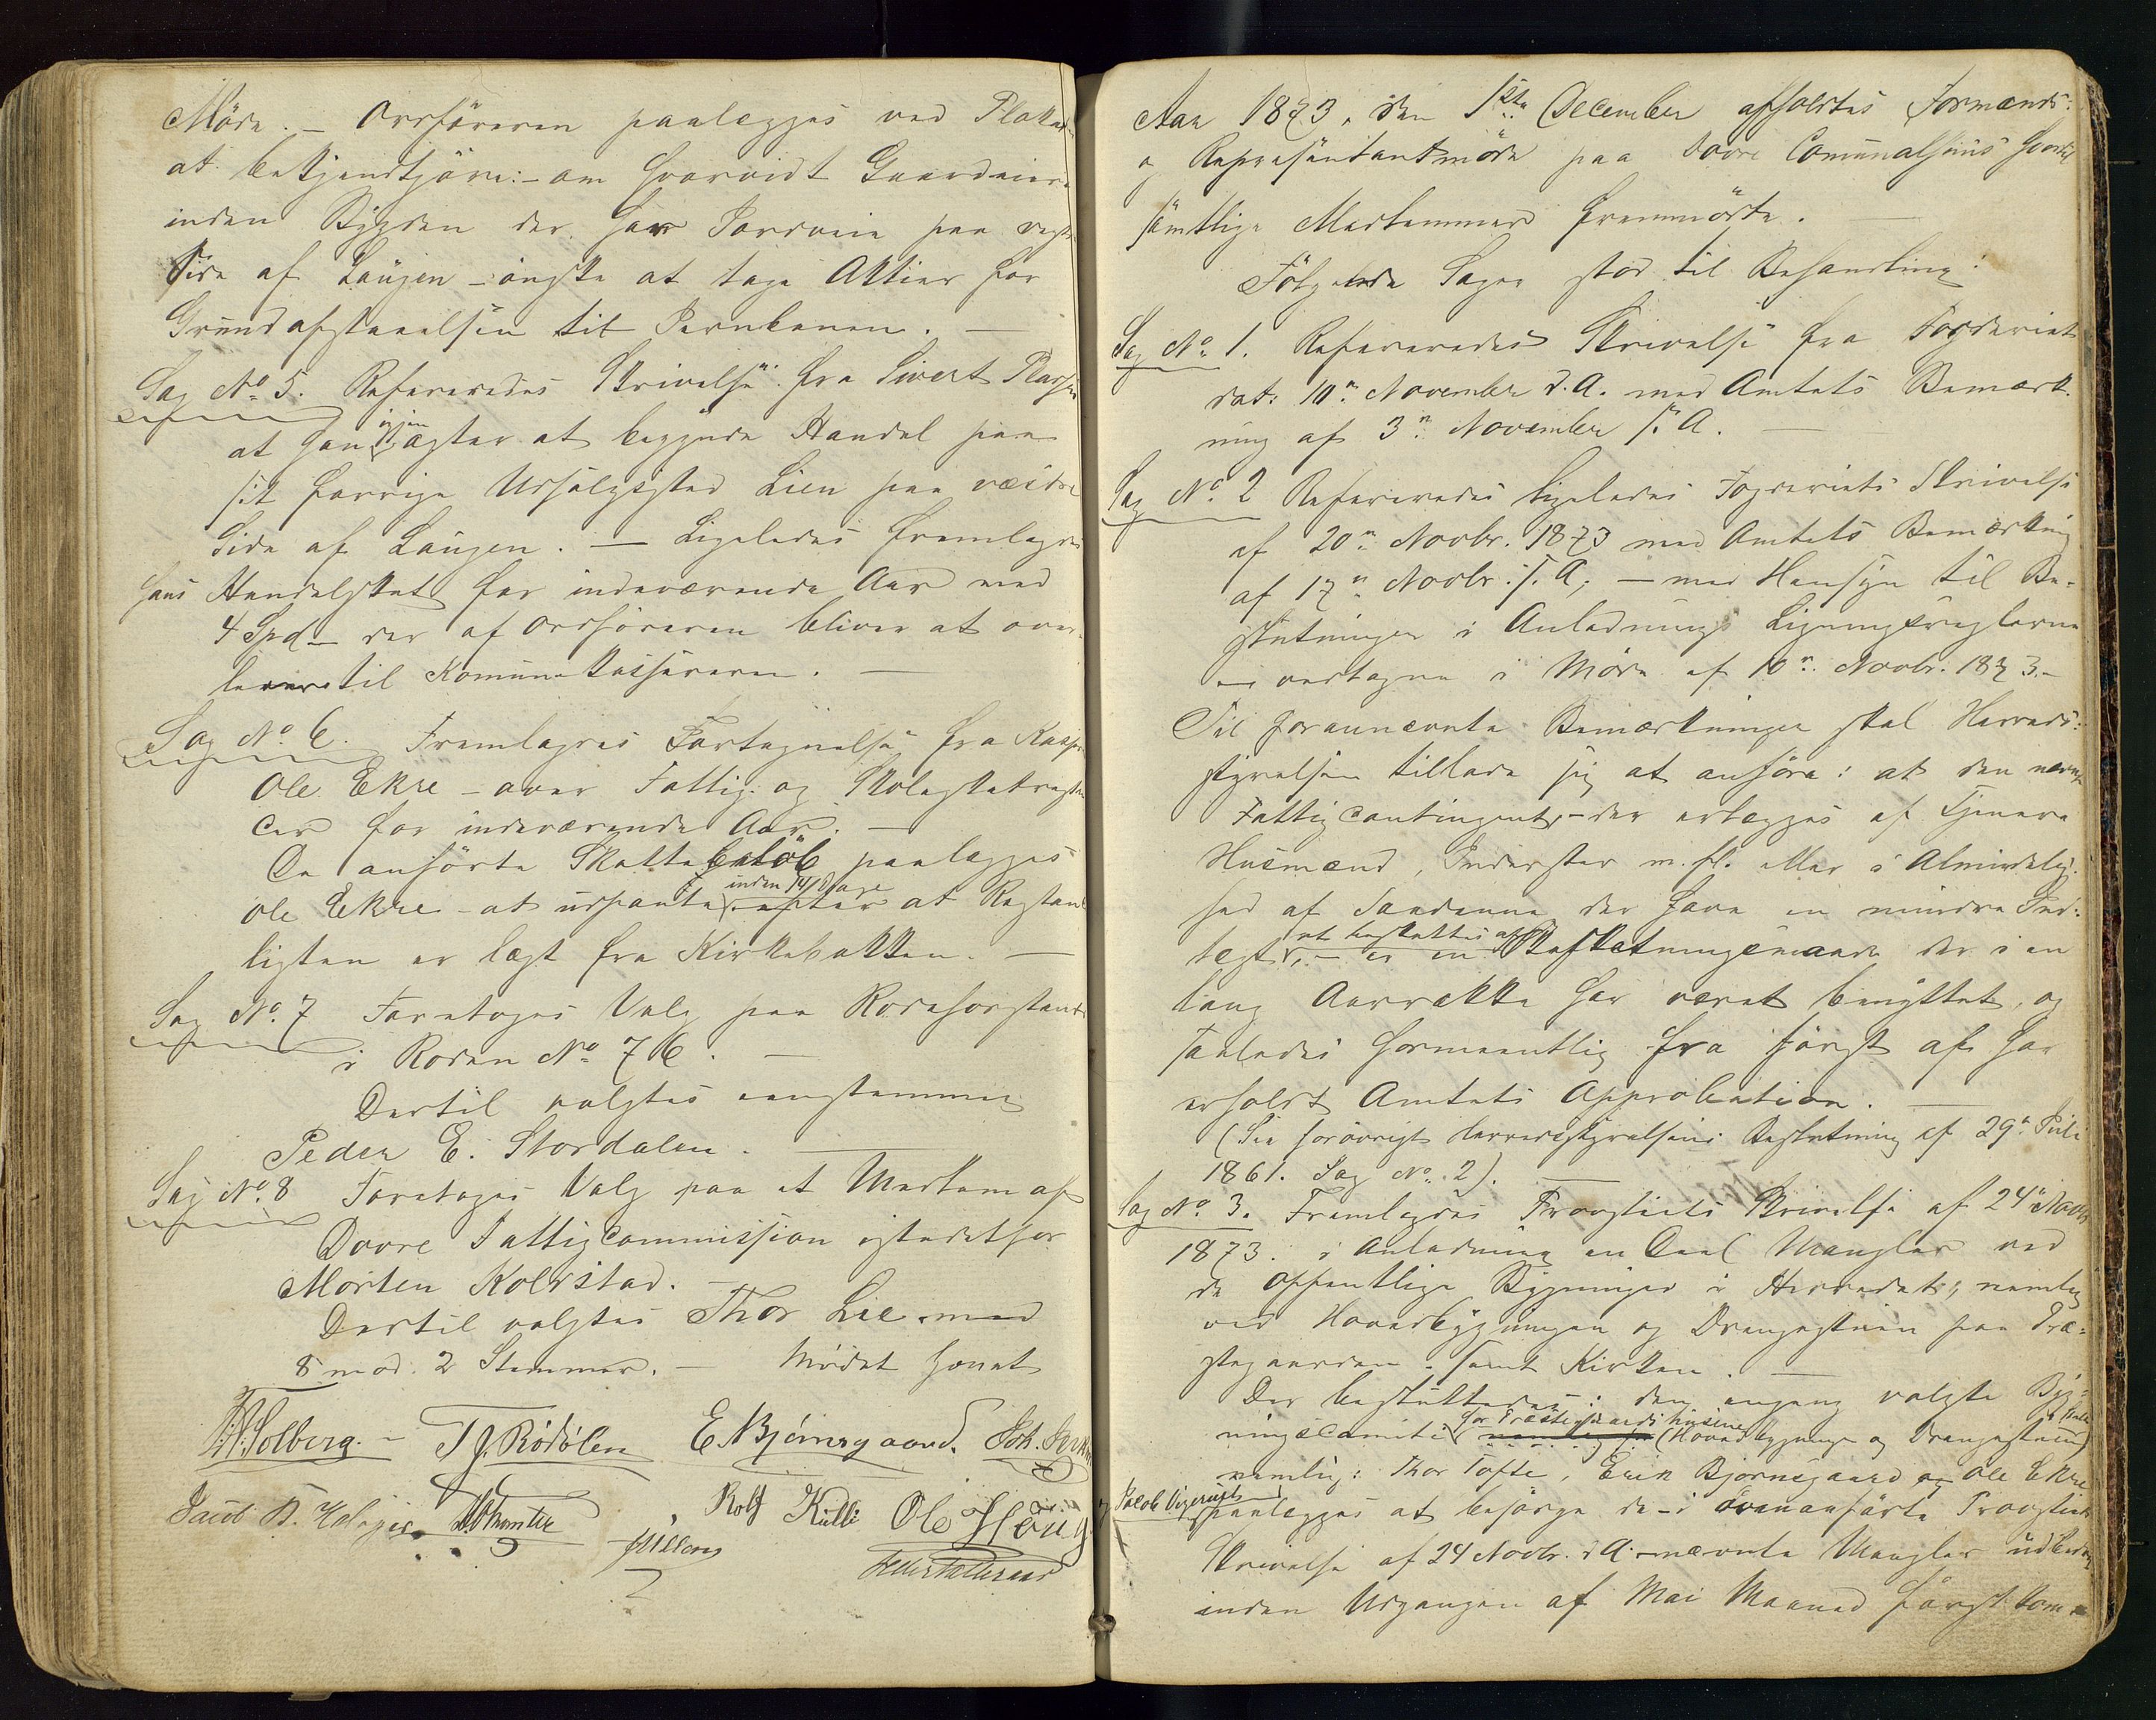 Möde. – Ordföreren paalægges ved Plakat
at bekjendtgjöre: – om hvorvidt Gaardeiere
inden Bygden der har Jordveie paa vestre
Side af Laugen – önske at tage Aktier for
Grundafstaaelsen til Jernbanen. –
Sag No. 5. Refereredes Skrivelse fra Sivert Plassen
at han igjen agter at begynde Handel paa
sit forrige Udsalgssted Lien paa vestre
Side af Laugen. – Ligeledes fremlagdes
hans Handelskat for indeværende Aar med
4 Spd – der af Ordföreren bliver at over-
levere til Komunekasséreren. –
Sag No. 6. Fremlagdes Fortegnelse fra Kasserer
Ole Ekre – over Fattig- og Skoleskatrestan
cer for indeværende Aar. –
De anförte Skattebelöb paalægges
Ole Ekre – at udpante inden 14 Dage efter at Restan
ligsten er læst fra Kirkebakken. –
Sag No. 7 Foretoges Valg paa Rodeforstander
i Roden No 76. –
Dertil valgtes eenstemmig
Peder E. Stordalen. –
Sag No. 8 Foretoges Valg paa et Medlem af
Dovre Fattigcommission istedetfor
Morten Kolrstad. –
Dertil valgtes Thor Lie med
8 mod 2 Stemmer. – Mödet hævet
Solberg. – T J. Rödölen E N Bjørnsgaard. Joh.
Jacob B. Rolf Killi Ole Haug
Aar 1873, den 1ste December afholdtes Formænds-
og Repræsentantmöde paa Dovre Comunalhuus hvortil
samtlige Medlemmer fremmödte. –
Fölgende Sager stod til Behandling:
Sag No. 1. Refereredes Skrivelse fra Fogderiet
dat: 10n November d. A. med Amtets Bemærk-
ning af 3n November s. A. –
Sag No. 2 Refereredes ligeledes Fogderiets Skrivelse
af 20n Novbr. 1873 med Amtets Bemærkning
af 17n Novbr. s. A; – med Hensyn til Be-
slutninger i Anledning Ligningsreglerne
– vedtagne i Möde af 10n Novbr. 1873. –
Til forannævnte Bemærkninger skal Herreds-
styrelsen tillade sig at anföre: at den nævnte
Fattigcontingent, – der erlægges af Tjenere
Husmænd, Inderster m. fl. eller i Almindelig-
hed af Saadanne der have en mindre Ind-
tægt, at beskattes af – er en Beskatningsmaade der i en
lang Aarrække har været benyttet, og
saaledes formeentlig fra först af har
erholdt Amtets Approbation. –
(See forövrigt herredsstyrelsens Beslutning af 29n Juli
1861. Sag No. 2). –
Sag No. 3. Fremlagdes Provstiets Skrivelse af 24n Novbr
1873. i Anledning en Deel Mangler ved
de offentlige Bygninger i Herredet, nemlig
ved Hovedbygningen og Drengestuen paa Præ-
stegaarden. samt Kirken. –
Der besluttedes: den engang valgte Byg-
ningscomite for Præstegaards husene nemlig for (Hovedbygninge og Drengestuen)
nemlig: Thor Tofte, Erik Bjørnsgaard og Ole Ekre
og Jakob Vigerust paalægges at besörge de – i ovenanförte Provstiets
Skrivelse af 24 Novbr. d. A. – nævnte Mangler udbedret
inden Udgangen af Mai Maaned förstkom-